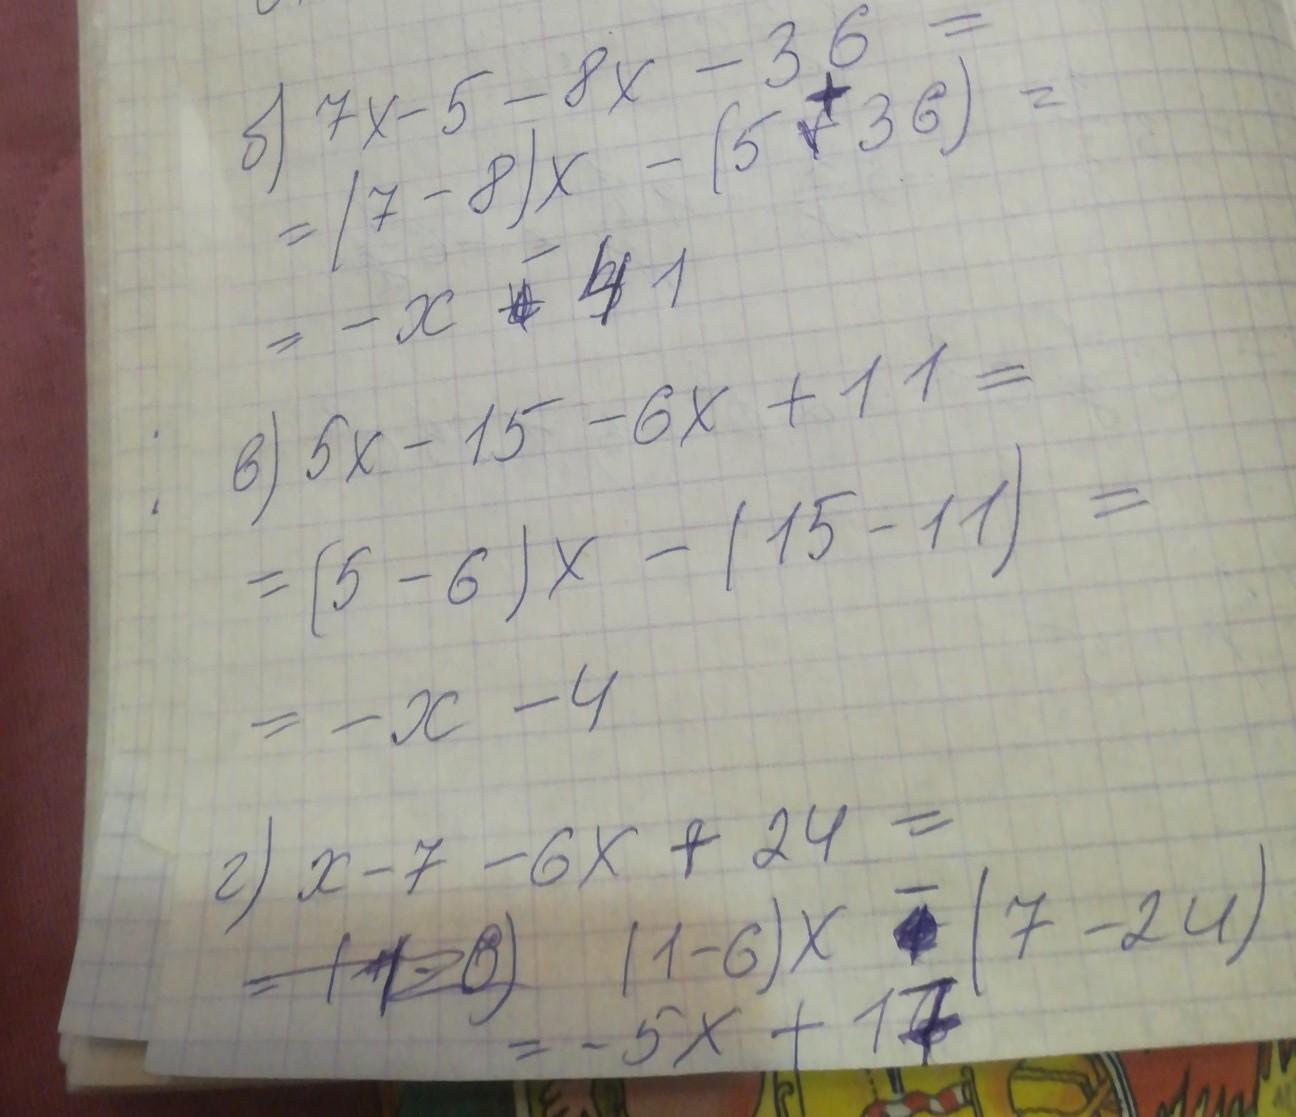 б) 7x - 5 - 8x - 36 =
= (7 - 8)x - (5 + 36) =
= - x - 41
в) 5x - 15 - 6x + 11 =
= (5 - 6)x - (15 - 11) =
= - x - 4
г) x - 7 - 6x + 24 =
= (1 - 6)x - (7 - 24)
= - 5x + 17